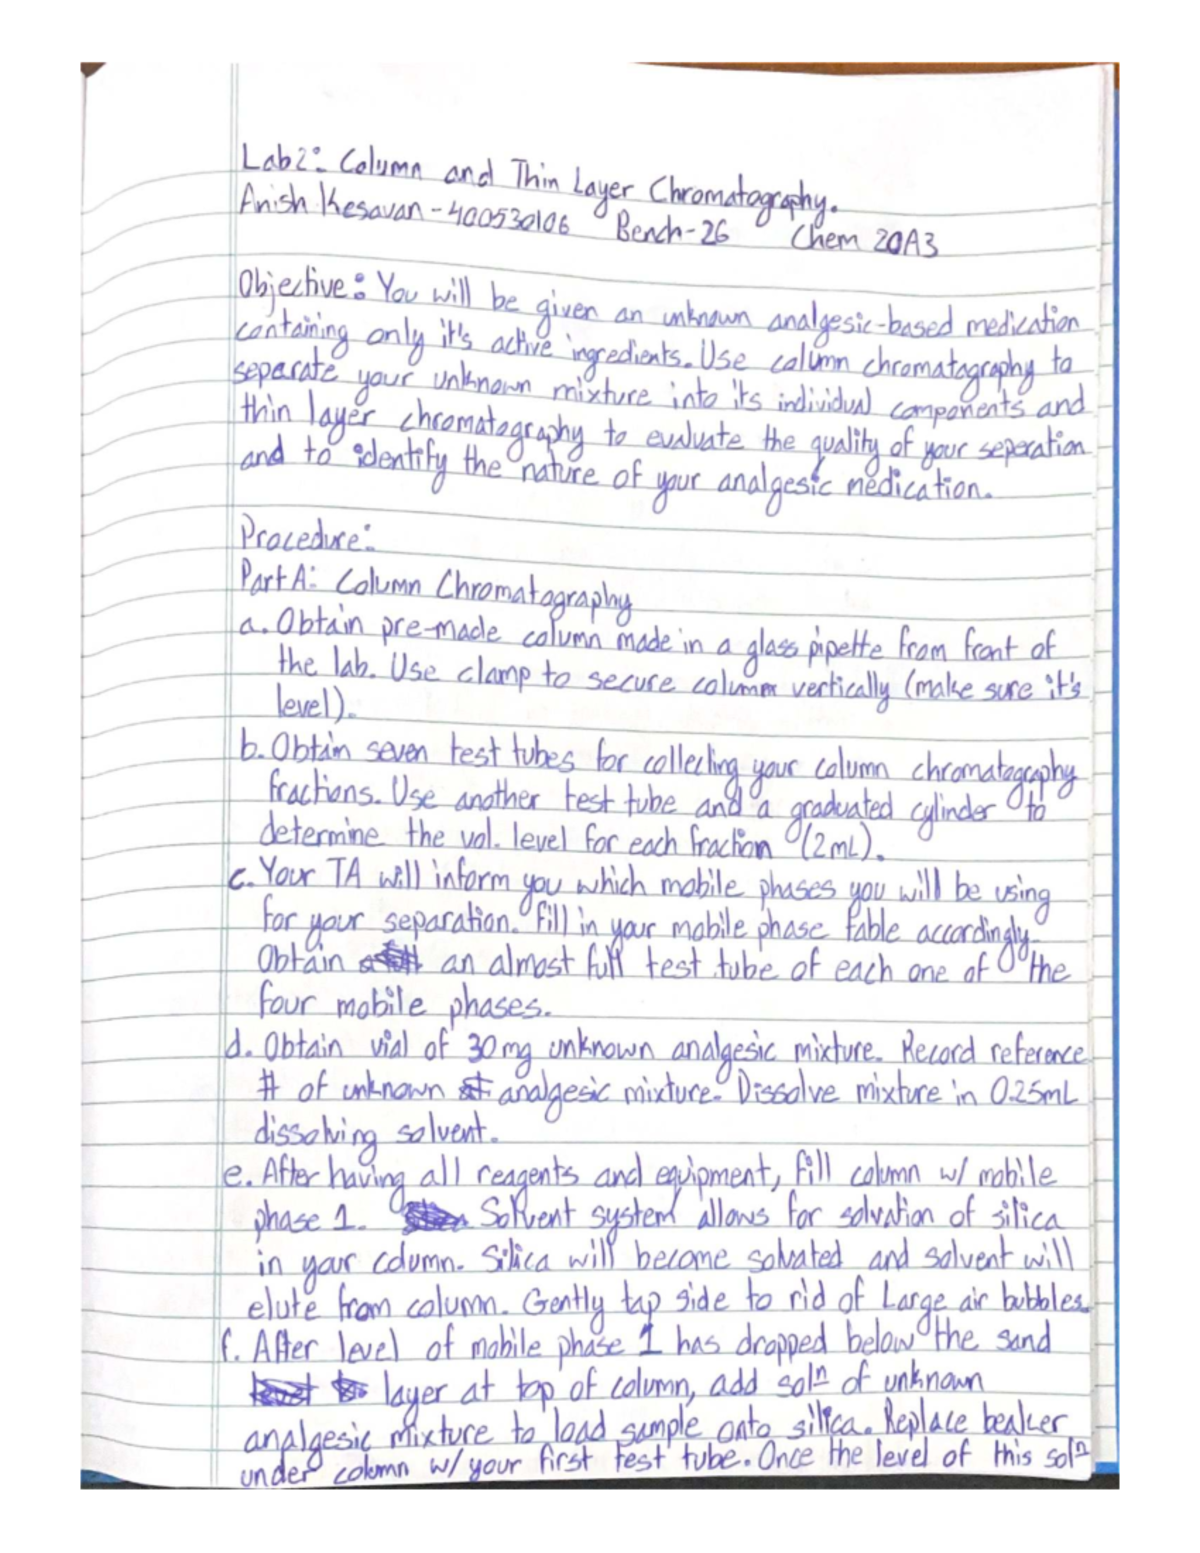 Lab2: Column and Thin Layer Chromatography.
Anish Kesavan-400530106 Bench-26 Chem 20A3
Objective: You will be given an unknown analgesic-based medication
containing only it's active ingredients. Use column chromatography to
separate your unknown mixture into its individual components and
thin layer chromatography to evaluate the quality of your seperation
and to identify the nature of your analgesic medication.
Procedure:
Part A: Column Chromatography
a. Obtain pre-made column made in a glass pipette from front of
the lab. Use clamp to secure column vertically (make sure it's
level).
b. Obtain seven test tubes for collecting your column chromatography
fractions. Use another test tube and a graduated cylinder to
determine the vol. level for each fraction (2mL).
c. Your TA will inform you which mobile phases you will be using
for your separation. Fill in your mobile phase table accordingly.
Obtain an almost full test tube of each one of the
four mobile phases.
d. Obtain vial of 30mg unknown analgesic mixture. Record reference
# of unknown analgesic mixture. Dissolve mixture in 0.25mL
dissolving solvent.
e. After having all reagents and equipment, fill column w/ mobile
phase 1. Solvent system allows for solvation of silica
in your column. Silica will become solvated and solvent will
elute from column. Gently tap side to rid of Large air bubbles.
f. After level of mobile phase 1 has dropped below the sand
layer at top of column, add solⁿ of unknown
analgesic mixture to load sample onto silica. Replace beaker
under column w/ your first test tube. Once the level of this solⁿ